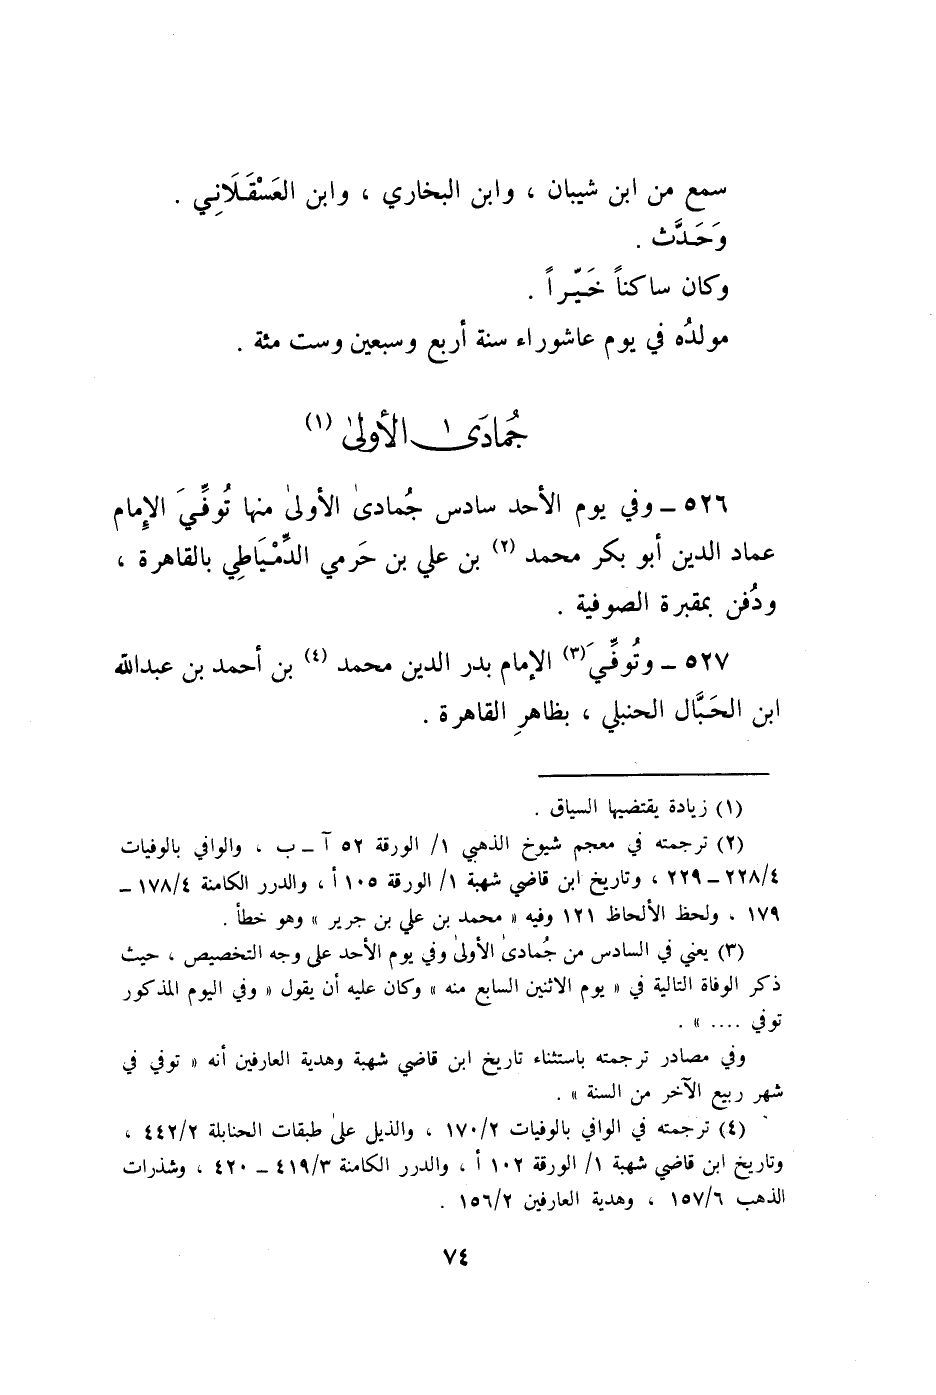 سمع من ابن شيبان ، وابن البخاري ، وابن العَسْقَلَانِي .
وَحَدَّث .
وكان ساكناً خَيّراً .
مولدُه في يوم عاشوراء سنة أربع وسبعين وست مئة .
جُمادَىٰ الأولىٰ (١)
٥٢٦ ـ وفي يوم الأحد سادس جُمادىٰ الأولىٰ منها تُوفِّيَ الإِمام
عماد الدين أبو بكر محمد (٢) بن علي بن حَرمي الدِّمْيَاطِي بالقاهرة ،
ودُفن بمقبرة الصوفية .
٥٢٧ ـ وتُوفِّيَ (٣) الإمام بدر الدين محمد (٤) بن أحمد بن عبدالله
ابن الحَبَّال الحنبلي ، بظاهرِ القاهرة .
(١) زيادة يقتضيها السياق .
(٢) ترجمته في معجم شيوخ الذهبي ١/ الورقة ٥٢ آ ـ ب ، والوافي بالوفيات
٢٢٨/٤ ـ ٢٢٩ ، وتاريخ ابن قاضي شهبة ١/ الورقة ١٠٥ أ ، والدرر الكامنة ١٧٨/٤ ـ
١٧٩ ، ولحظ الألحاظ ١٢١ وفيه « محمد بن علي بن جرير » وهو خطأ .
(٣) يعني في السادس من جُمادىٰ الأولىٰ وفي يوم الأحد على وجه التخصيص ، حيث
ذكر الوفاة التالية في « يوم الاثنين السابع منه » وكان عليه أن يقول « وفي اليوم المذكور
توفي .... » .
وفي مصادر ترجمته باستثناء تاريخ ابن قاضي شهبة وهدية العارفين أنه « توفي في
شهر ربيع الآخر من السنة » .
(٤) ترجمته في الوافي بالوفيات ١٧٠/٢ ، والذيل علىٰ طبقات الحنابلة ٤٤٢/٢ ،
وتاريخ ابن قاضي شهبة ١/ الورقة ١٠٢ أ ، والدرر الكامنة ٤١٩/٣ ـ ٤٢٠ ، وشذرات
الذهب ١٥٧/٦ ، وهدية العارفين ١٥٦/٢ .
٧٤